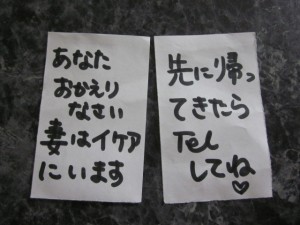 あなた
おかえり
なさい
妻はイケア
にいます
先に帰っ
てきたら
Tel
してね♡